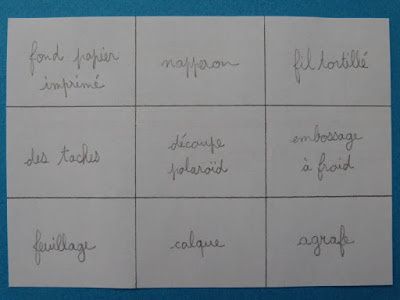 fond papier
imprimé
napperon
fil tortillé
des taches
découpe
polaroïd
embossage
à froid
feuillage
calque
agrafe